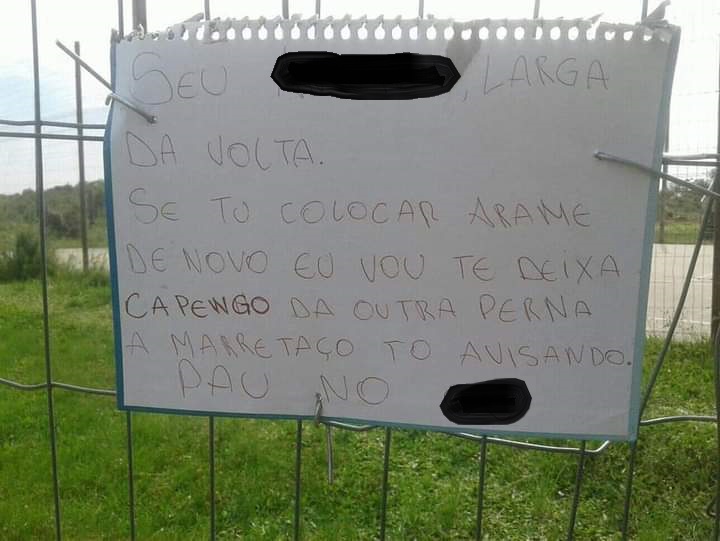 SEU , LARGA
DA VOLTA.
SE TU COLOCAR ARAME
DE NOVO EU VOU TE DEIXA
CAPENGO DA OUTRA PERNA
A MARRETAÇO TO AVISANDO.
PAU NO